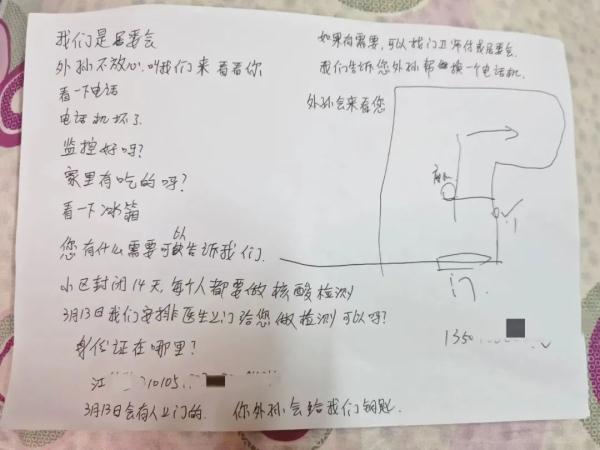 我们是居委会
外孙不放心.叫我们来看看你
看一下电话
电话机坏了.
监控好呀?
家里有吃的呀?
看一下冰箱
您有什么需要可以告诉我们.
小区封闭14天,每个人都要做核酸检测
3月13日我们安排医生上门给您做检测可以吗?
身份证在哪里?
江 10105
3月13日会有人上门的. 你外孙会给我们钥匙.
如果有需要,可以找门卫师傅或居委会.
我们告诉您外孙帮换一个电话机.
外孙会来看您
门
1350